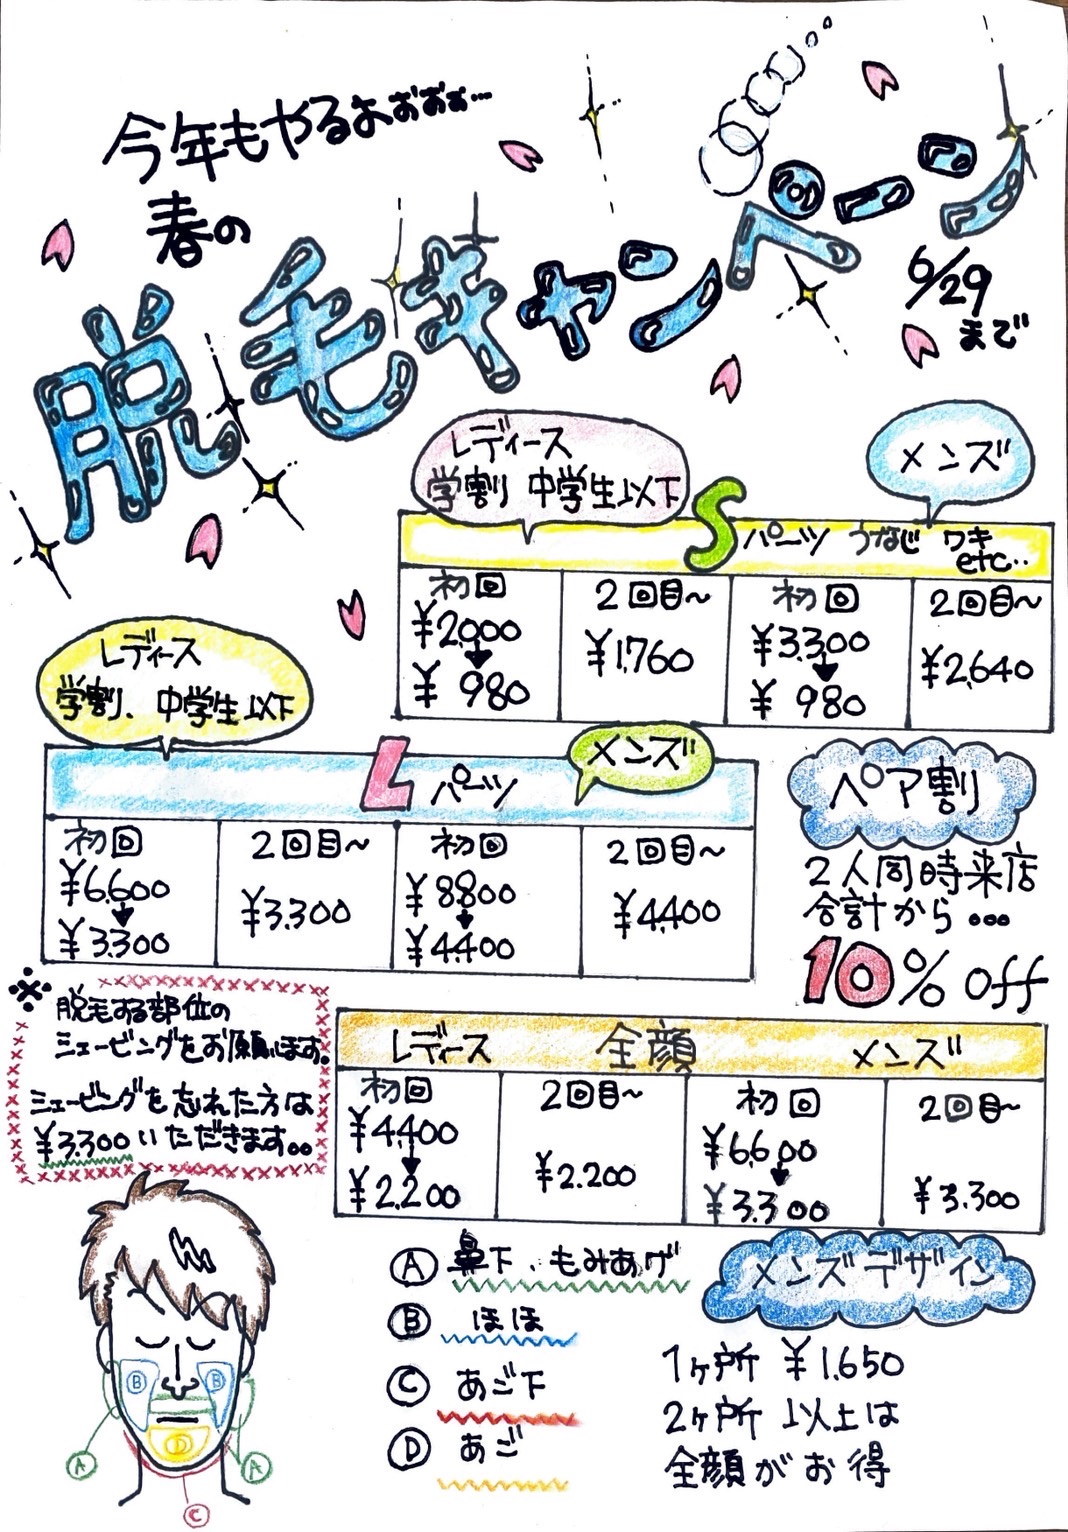 今年もやるよぉぉぉぉ…
春の
脱毛キャンペーン
6/29
まで
レディース
学割 中学生以下
メンズ
Sパーツ うなじ ワキ
etc..
初回
¥2,000
↓
¥980
2回目〜
¥1,760
初回
¥3,300
↓
¥980
2回目〜
¥2,640
レディース
学割、中学生以下
Lパーツ
メンズ
初回
¥6,600
↓
¥3,300
2回目〜
¥3,300
初回
¥8800
↓
¥4,400
2回目〜
¥4,400
ペア割
2人同時来店
合計から...
10% off
※
脱毛する部位の
シェービングをお願いします。
シェービングを忘れた方は
¥3,300いただきます。。
レディース 全顔 メンズ
初回
¥4,400
↓
¥2,200
2回目〜
¥2.200
初回
¥6,600
↓
¥3,300
2回目〜
¥3,300
Ⓐ 鼻下、もみあげ
Ⓑ ほほ
Ⓒ あご下
Ⓓ あご
メンズデザイン
1ヶ所 ¥1.650
2ヶ所 以上は
全顔がお得
B
B
D
A
A
C